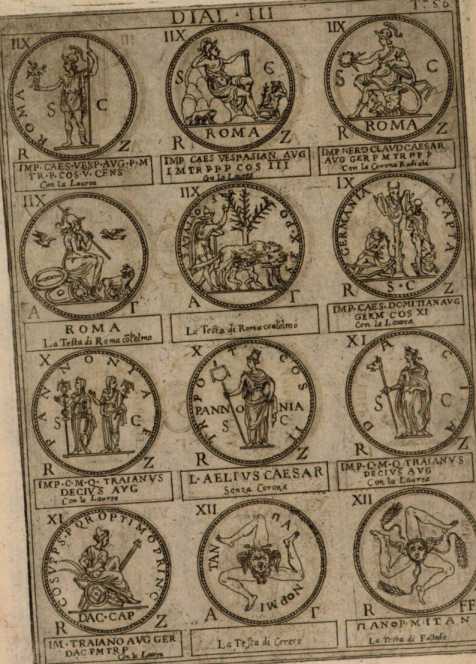 DIAL · III
IIX
ROMA
S C
R Z
IMP·CAES·VESP·AVG·P·M
TR·P·P·COS·V·CENS
Con la Laurea
IIX
S C
ROMA
R Z
IMP CAES VESPASIAN AVG
COS III
Con la Laurea
IIX
S C
ROMA
R Z
IMP NERO CLAVD CAESAR
AVG GER P M TR P P P
Con la Corona Radiata
IIX
A Γ
ROMA
La Testa di Roma
IIX
A Γ
La Testa di Roma
IX
GERMANIA CAPTA
S·C
R Z
IMP·CAES·DOMITIAN AVG
GERM COS XI
Con la Laurea
X
PANNONIAE
S C
R Z
IMP·C·M·Q·TRAIANVS
DECIVS AVG
Con la Laurea
X
TR POT COS II
PANNO NIA
S C
R Z
L·AELIVS CAESAR
Senza Corona
XI
DACIA
S C
R Z
IMP·C·M·Q·TRAIANVS
DECIVS AVG
Con la Laurea
XI
COS V P P S P Q R OPTIMO PRINC
DAC·CAP
R Z
IM·TRAIANO AVG GER
DAC P M TR P
Con la Laurea
XII
ΠΑ
ΝΟΡΜΙ
ΤΑΝ
A Γ
La Testa di Cerere
XII
R FF
ΠΑΝΟΡΜΙΤΑΝ
La Testa di